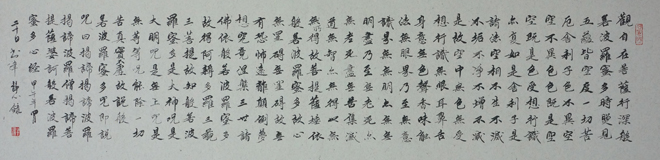 觀自在菩薩行深般
若波羅蜜多時照見
五蘊皆空度一切苦
厄舍利子色不異空
空不異色色即是空
空即是色受想行識
亦復如是舍利子是
諸法空相不生不滅
不垢不淨不增不減
是故空中無色無受
想行識無眼耳鼻舌
身意無色聲香味觸
法無眼界乃至無意
識界無無明亦無無
明盡乃至無老死亦
無老死盡無苦集滅
道無智亦無得以無
所得故菩提薩埵依
般若波羅蜜多故心
無罣礙無罣礙故無
有恐怖遠離顛倒夢
想究竟涅槃三世諸
佛依般若波羅蜜多
故得阿耨多羅三藐
三菩提故知般若波
羅蜜多是大神咒是
大明咒是無上咒是
無等等咒能除一切
苦真實不虛故說般
若波羅蜜多咒即說
咒曰揭諦揭諦波羅
揭諦波羅僧揭諦菩
提薩婆訶般若波羅
蜜多心經
二十日